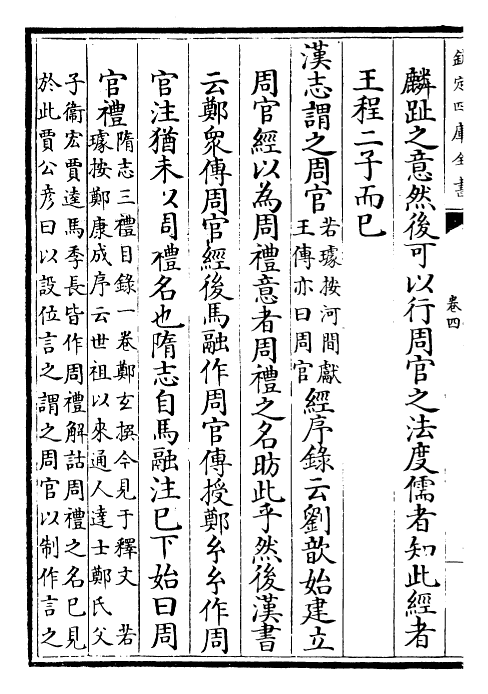 欽定四庫全書
卷四
麟趾之意然後可以行周官之法度儒者知此經者
王程二子而已
漢志謂之周官
若璩按河間獻
王傳亦曰周官
經序錄云劉歆始建立
周官經以為周禮意者周禮之名昉此乎然後漢書
云鄭衆傳周官經後馬融作周官傳授鄭𤣥𤣥作周
官注猶未以周禮名也隋志自馬融注已下始曰周
官禮
隋志三禮目錄一卷鄭玄撰今見于釋文　若
璩按鄭康成序云世祖以來通人達士鄭氏父
子衞宏賈逵馬季長皆作周禮解詁周禮之名已見
於此賈公彦曰以設位言之謂之周官以制作言之